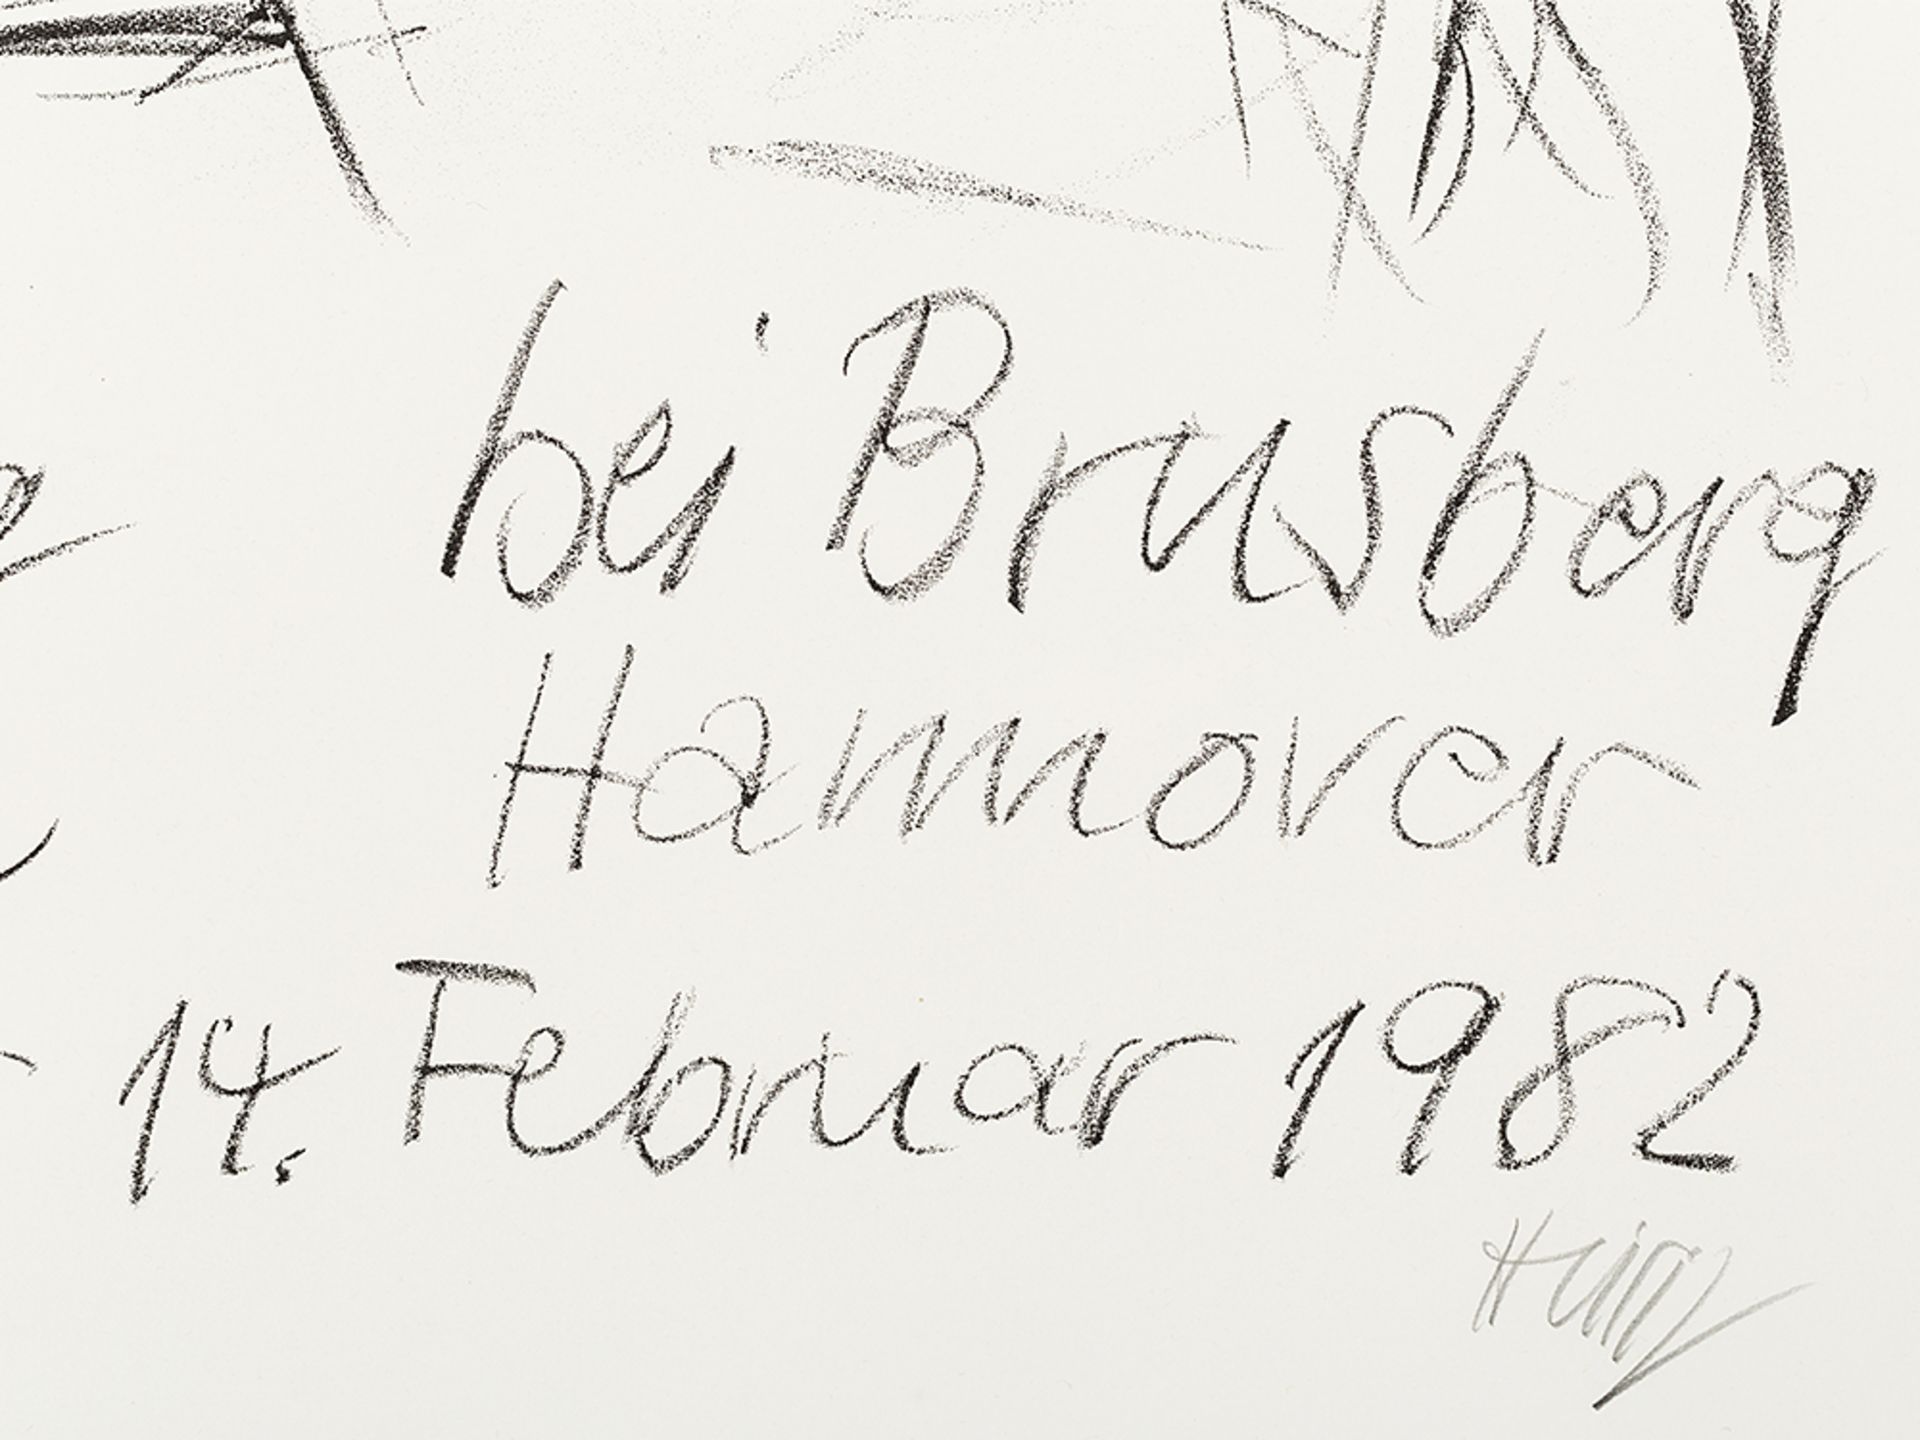 bei Brusberg
Hannover
14. Februar 1982